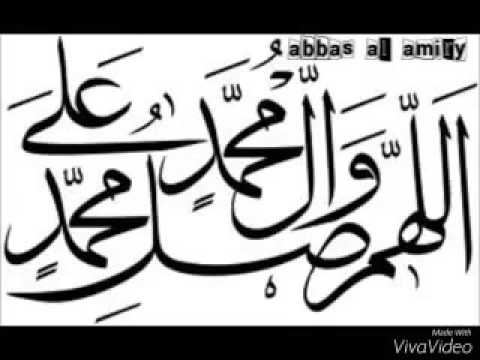 abbas al amiry
اَللّٰهُمَّ صَلِّ عَلَى مُحَمَّدٍ وَآلِ مُحَمَّدٍ
Made With
VivaVideo